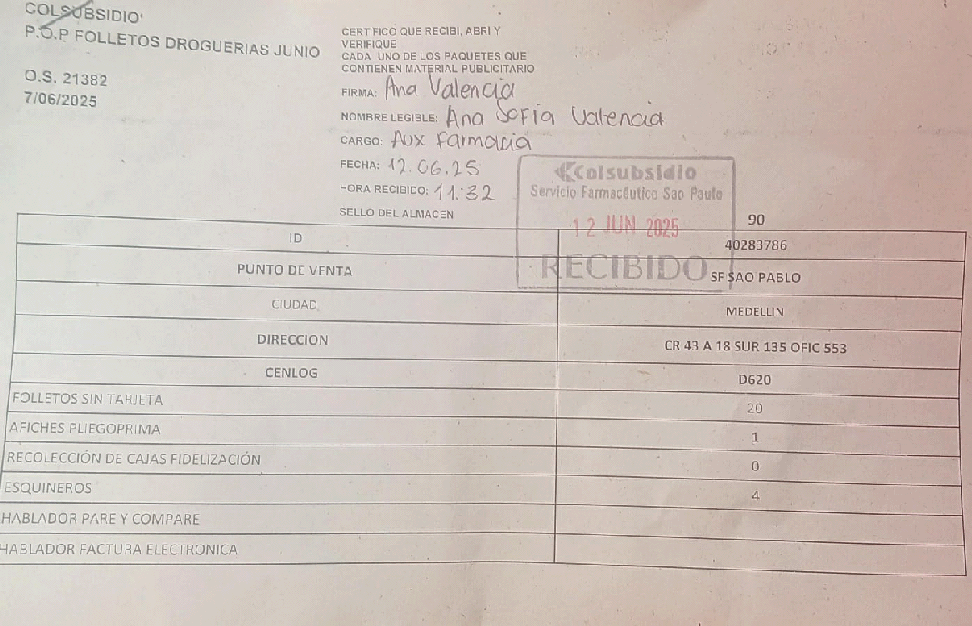 COLSUBSIDIO
P.O.P FOLLETOS DROGUERIAS JUNIO
O.S. 21382
7/06/2025
CERTIFICO QUE RECIBI, ABRI Y
VERIFIQUE
CADA UNO DE LOS PAQUETES QUE
CONTIENEN MATERIAL PUBLICITARIO
FIRMA: Ana Valencia
NOMBRE LEGIBLE: Ana Sofia Valencia
CARGO: Aux Farmacia
FECHA: 12.06.25
HORA RECIBIDO: 11:32
SELLO DEL ALMACEN
Colsubsidio
Servicio Farmacéutico Sao Paulo
12 JUN 2025
RECIBIDO
90
ID 40283786
PUNTO DE VENTA SF SAO PABLO
CIUDAD MEDELLIN
DIRECCION CR 43 A 18 SUR 135 OFIC 553
CENLOG D620
FOLLETOS SIN TARJETA 20
AFICHES PLIEGOPRIMA 1
RECOLECCIÓN DE CAJAS FIDELIZACIÓN 0
ESQUINEROS 4
HABLADOR PARE Y COMPARE
HABLADOR FACTURA ELECTRONICA